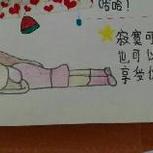 哈哈!
寂寞可
也可以
享受